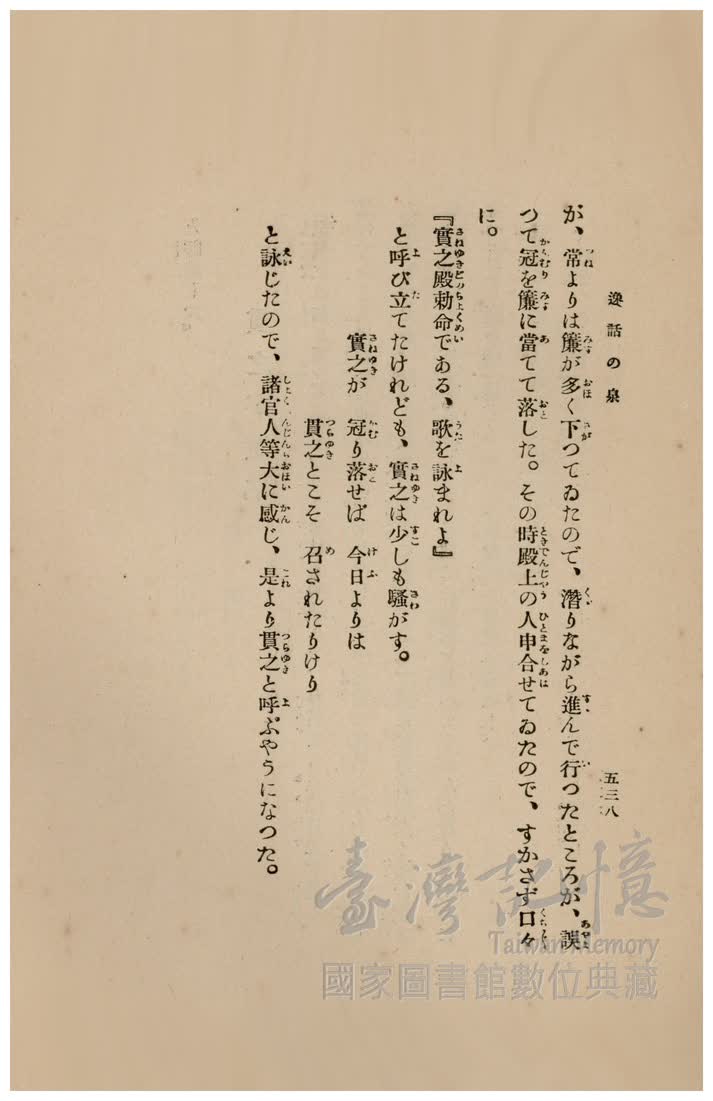 逸話の泉
五三八
が、常よりは簾が多く下つてゐたので、潛りながら進んで行つたところが、誤
つて冠を簾に當てて落した。その時殿上の人申合せてゐたので、すかさず口々
に。
『實之殿勅命である、歌を詠まれよ』
と呼び立てたけれども、實之は少しも騷がす。
實之が　冠り落せば　今日よりは
貫之とこそ　召されたりけり
と詠じたので、諸官人等大に感じ、是より貫之と呼ぶやうになつた。
臺灣記憶
Taiwan Memory
國家圖書館數位典藏